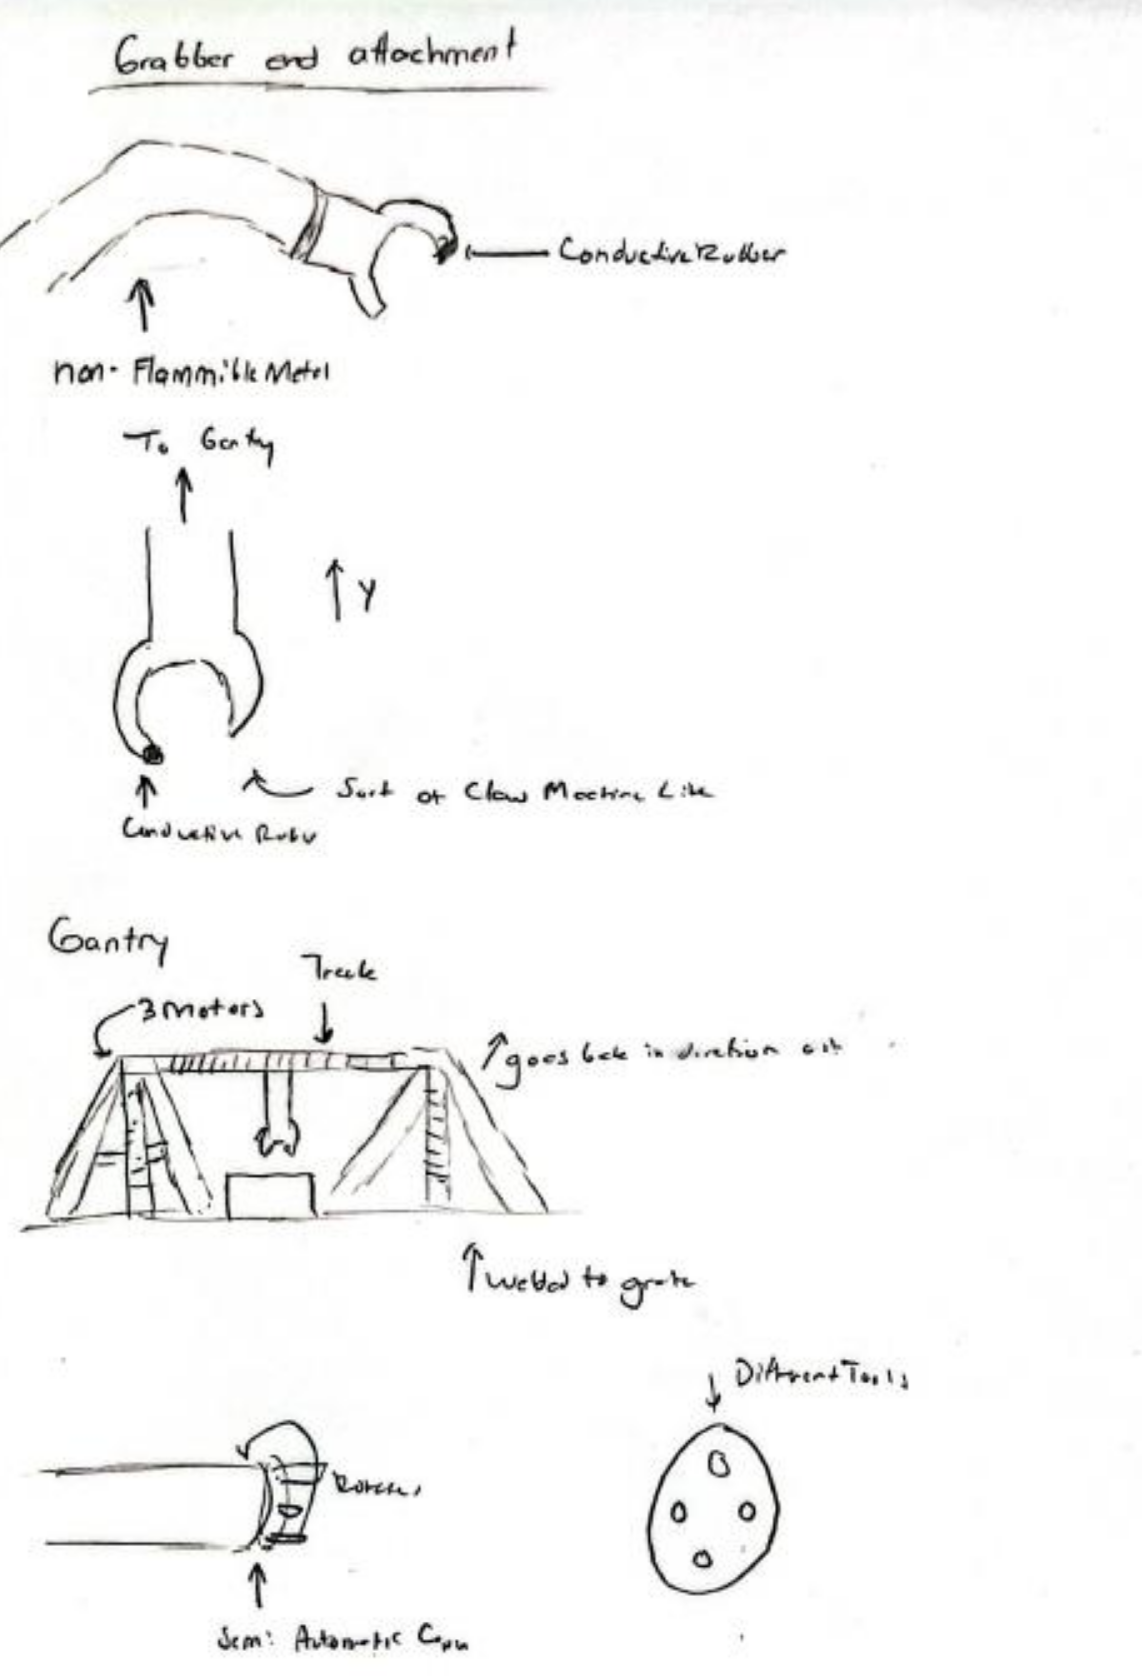 Grabber end attachment
Conductive Rubber
non-Flammible Metal
To Gantry
Y
Sort of Claw Machine Like
Conductive Rubber
Gantry
Track
3 Motors
goes back in direction
Welded to grate
Different Tools
Rotates
Semi Automatic